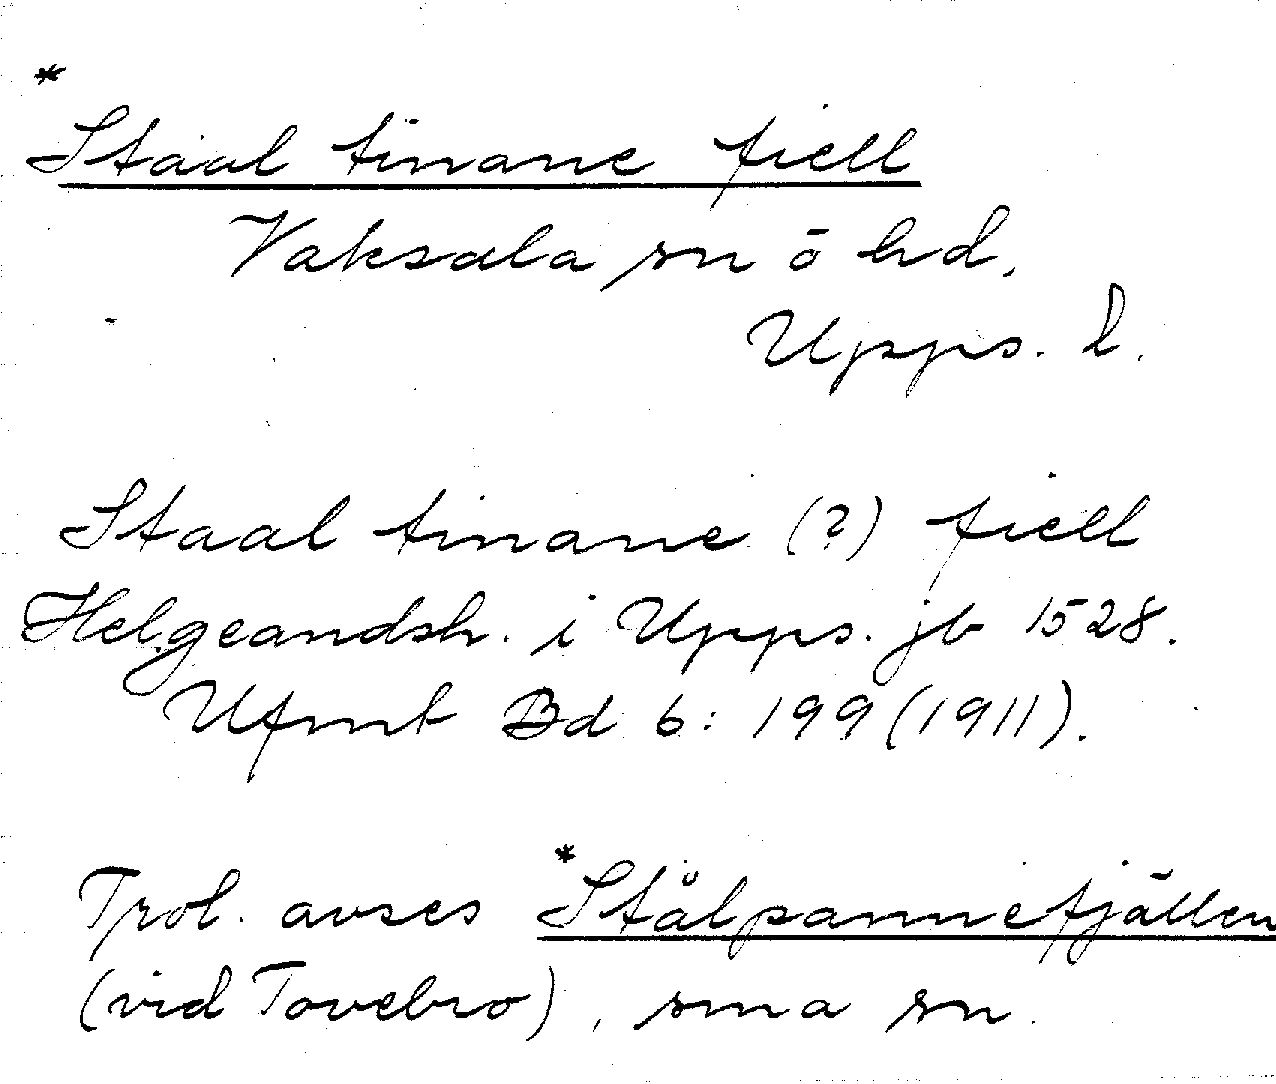 *
Staal tinane fiell
Vaksala sn ō hd,
Upps. l.
Staal tinane (?) fiell
Helgeandsh. i Upps. jb 1528.
Ufmt Bd 6: 199 (1911).
Trol. avses *Stålpannefjällen
(vid Tovebro), sma sn.